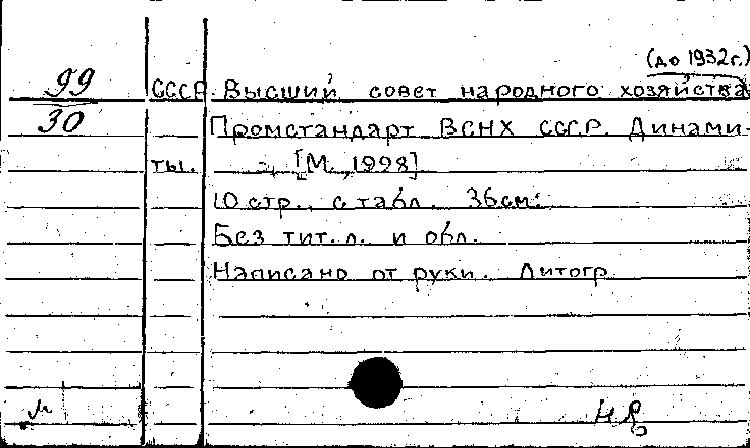 (до 1932 г.)
99 СССР. Высший совет народного хозяйства
30 Промстандарт ВСНХ СССР. Динами-
ты. [М., 1928]
10 стр., с табл. 36 см.
Без тит. л. и обл.
Написано от руки. Литогр.